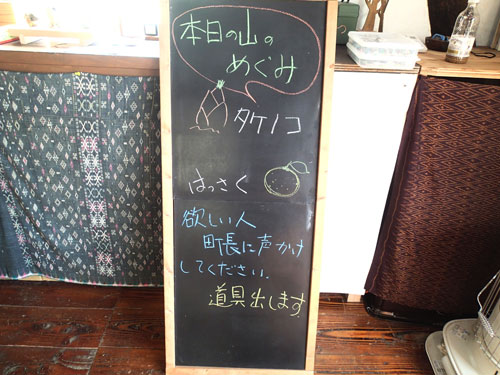 本日の山の
めぐみ
タケノコ
はっさく
欲しい人
町長に声かけ
してください.
道具出します